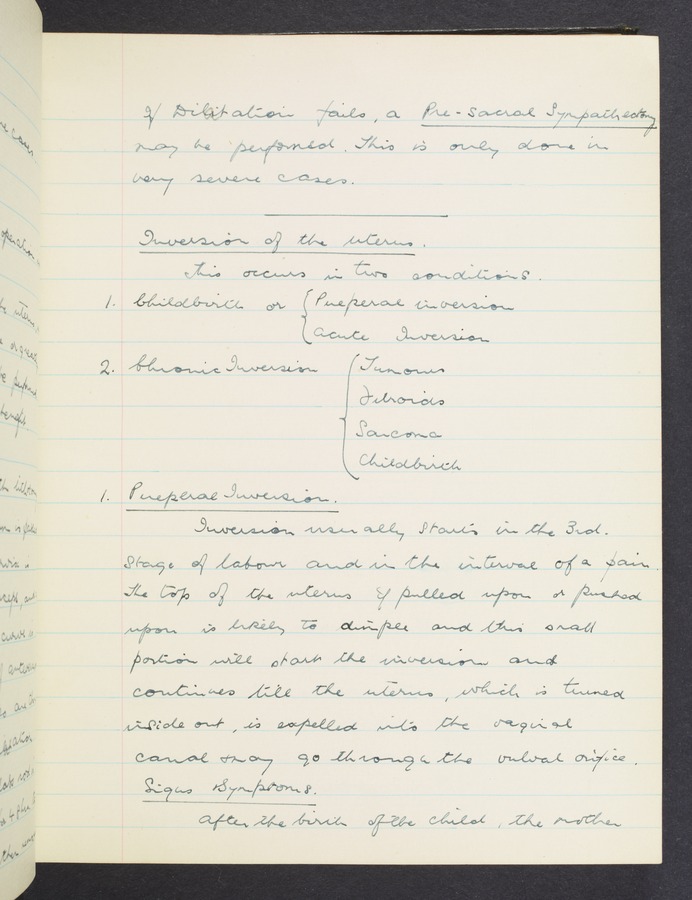 If Dilitation fails, a Pre-sacral Sympathectomy
may be performed. This is only done in
very severe cases.
Inversion of the uterus.
This occurs in two conditions.
1. Childbirth or { Pueperal inversion
Acute Inversion
2. Chronic Inversion { Tumours
Fibroids
Sarcoma
Childbirth
1. Pueperal Inversion.
Inversion usually starts in the 3rd.
Stage of labour and in the interval of a pain.
The top of the uterus if pulled upon or pushed
upon is likely to dimple and this small
portion will start the inversion and
continues till the uterus, which is turned
inside out, is expelled into the vaginal
canal & may go through the vulval orifice.
Signs & Symptoms.
After the birth of the child, the mother